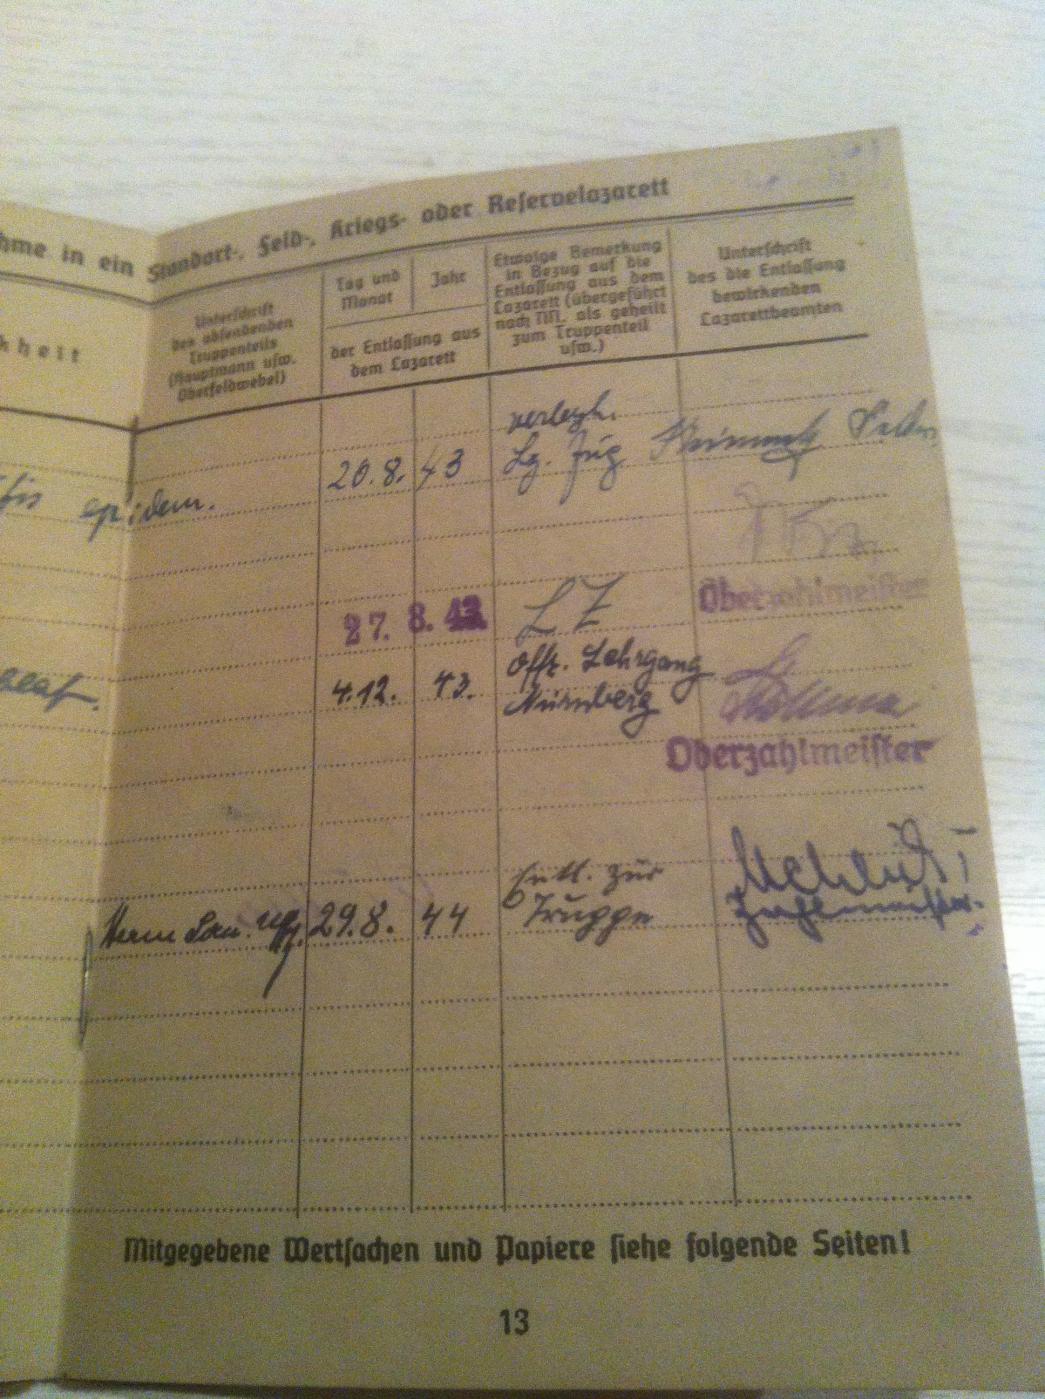 hme in ein Standort-, Feld-, Kriegs- oder Reservelazarett
kheit
Unterschrift
des absendenden
Truppenteils
(Hauptmann usw.
Oberfeldwebel)
Tag und
Monat
Jahr
der Entlassung aus
dem Lazarett
Etwaige Bemerkung
in Bezug auf die
Entlassung aus dem
Lazarett (übergeführt
nach NN. als geheilt
zum Truppenteil
usw.)
Unterschrift
des die Entlassung
bewirkenden
Lazarettbeamten
epidem.
20.8. 43
verlegt.
Lz. Zug
27. 8. 43
LZ
Oberzahlmeister
4.12. 43.
Offz. Lehrgang
Nürnberg
Oberzahlmeister
29.8. 44
Entl. zur
Truppe
Zahlmeister
Mitgegebene Wertsachen und Papiere siehe folgende Seiten!
13